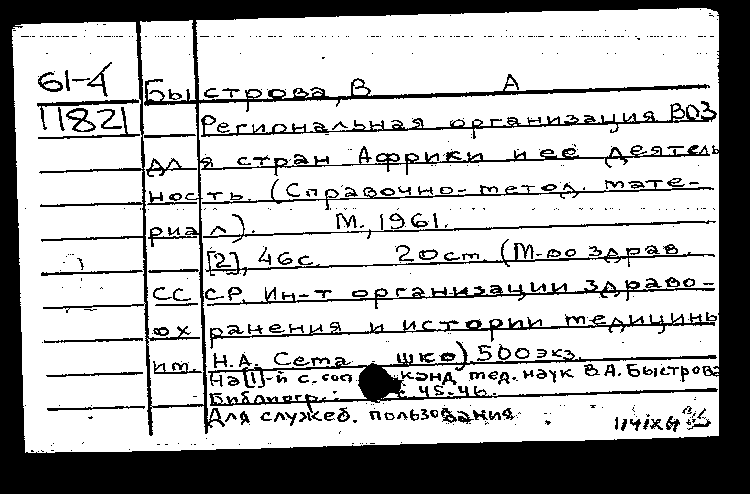 61-4 Быстрова, В А
11821 Региональная организация ВОЗ
для стран Африки и ее деятель
ность. (Справочно-метод. мате-
риал). М., 1961.
[2], 46с. 20см. (М-во здрав.
СССР. Ин-т организации здраво-
охранения и истории медицины
им. Н.А. Сема шко) 500экз.
На [1]-й с. канд. мед. наук В.А. Быстрова
Библиогр.: с. 45-46.
Для служеб. пользования